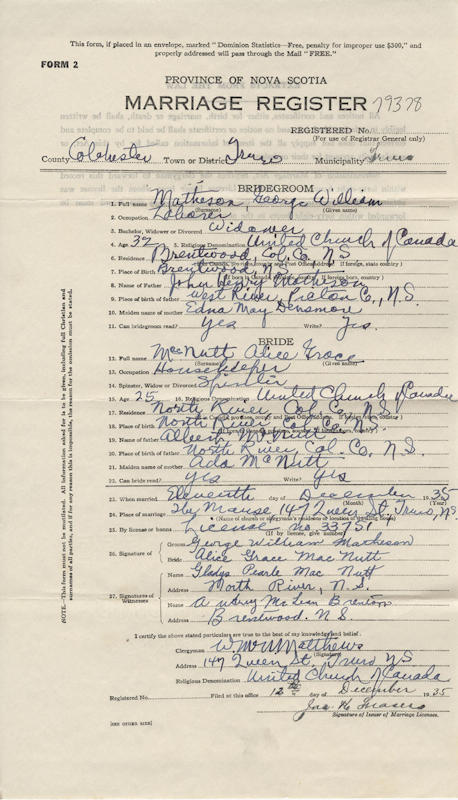 This form, if placed in an envelope, marked "Dominion Statistics—Free, penalty for improper use $300," and
properly addressed will pass through the Mail "FREE."
FORM 2
PROVINCE OF NOVA SCOTIA
MARRIAGE REGISTER 79378
REGISTERED No.
(For use of Registrar General only)
County Colchester Town or District Truro Municipality Truro
BRIDEGROOM
1. Full name Matheson, George William
(Surname) (Given names)
2. Occupation Laborer
3. Bachelor, Widower or Divorced Widower
4. Age 32 5. Religious Denomination United Church of Canada
6. Residence Brentwood, Col. Co. N.S.
7. Place of Birth Brentwood, N.S.
8. Name of Father John Henry Matheson
9. Place of birth of father West River, Pictou Co., N.S.
10. Maiden name of mother Edna May
11. Can bridegroom read? Yes Write? Yes.
BRIDE
12. Full name McNutt Alice Grace
(Surname) (Given names)
13. Occupation Housekeeper
14. Spinster, Widow or Divorced Spinster
15. Age 25 16. Religious Denomination United Church of Canada
17. Residence North River Col. Co. N.S.
18. Place of birth North River Col. Co. N.S.
19. Name of father Albert McNutt
20. Place of birth of father North River, Col. Co. N.S.
21. Maiden name of mother Ada McNutt
22. Can bride read? Yes Write? Yes
23. When married Eleventh day of December 1935
(Month) (Year)
24. Place of marriage The Manse, 147 Queen St., Truro, N.S.
(Name of church or clergyman's residence or location of wedding scene)
25. By license or banns License no 33751
(If by license, give number)
26. Signature of Groom George William Matheson
Bride Alice Grace Mac Nutt
27. Signatures of Witnesses Name Gladys Pearle Mac Nutt
Address North River, N.S.
Name Aubrey McLean Brenton
Address Brentwood. N.S.
I certify the above stated particulars are true to the best of my knowledge and belief.
Clergyman Matthews
(Signature)
Address 147 Queen St. Truro N.S
Religious Denomination United Church of Canada
Registered No. Filed at this office 12th day of December 1935
Jas. H. Fraser
Signature of Issuer of Marriage Licenses.
[SEE OTHER SIDE]
NOTE.—This form must not be mutilated. All information asked for is to be given, including full Christian and
surnames of all parties, and if for any reason this is impossible, the reason for the omission must be stated.